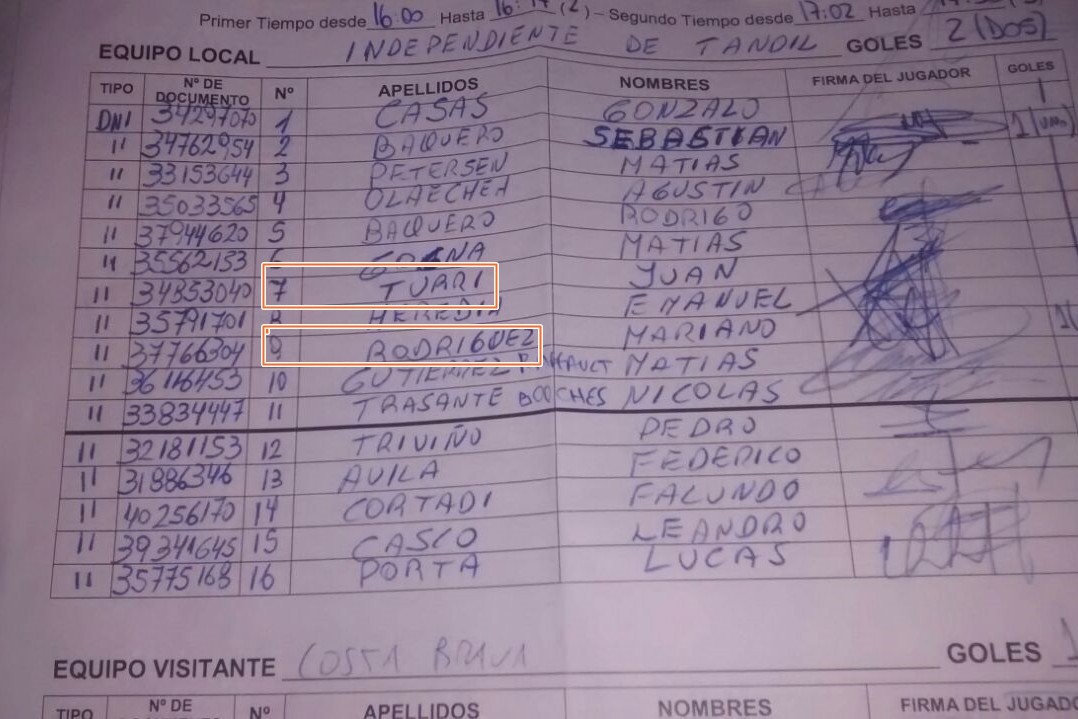 Primer Tiempo desde 16:00 Hasta 16:47 (2) – Segundo Tiempo desde 17:02 Hasta
EQUIPO LOCAL INDEPENDIENTE DE TANDIL GOLES 2 (DOS)
TIPO Nº DE DOCUMENTO Nº APELLIDOS NOMBRES FIRMA DEL JUGADOR GOLES
DNI 34297070 1 CASAS GONZALO
11 34762954 2 BAQUERO SEBASTIAN 1 (UNO)
11 33153644 3 PETERSEN MATIAS
11 35033565 4 OLAECHEA AGUSTIN
11 37944620 5 BAQUERO RODRIGO
11 35562153 6 MATIAS
11 34853040 7 TURRI JUAN
11 35791701 8 HEREDIA EMANUEL
11 37766304 9 RODRIGUEZ MARIANO
11 36146453 10 GUTIERREZ MATIAS
11 33834447 11 TRASANTE BOOCHES NICOLAS
11 32181153 12 TRIVIÑO PEDRO
11 31886346 13 AVILA FEDERICO
11 40256170 14 CORTADI FACUNDO
11 39341645 15 CASCO LEANDRO
11 35775168 16 PORTA LUCAS
EQUIPO VISITANTE COSTA BRAVA GOLES 1
TIPO Nº DE Nº APELLIDOS NOMBRES FIRMA DEL JUGADO